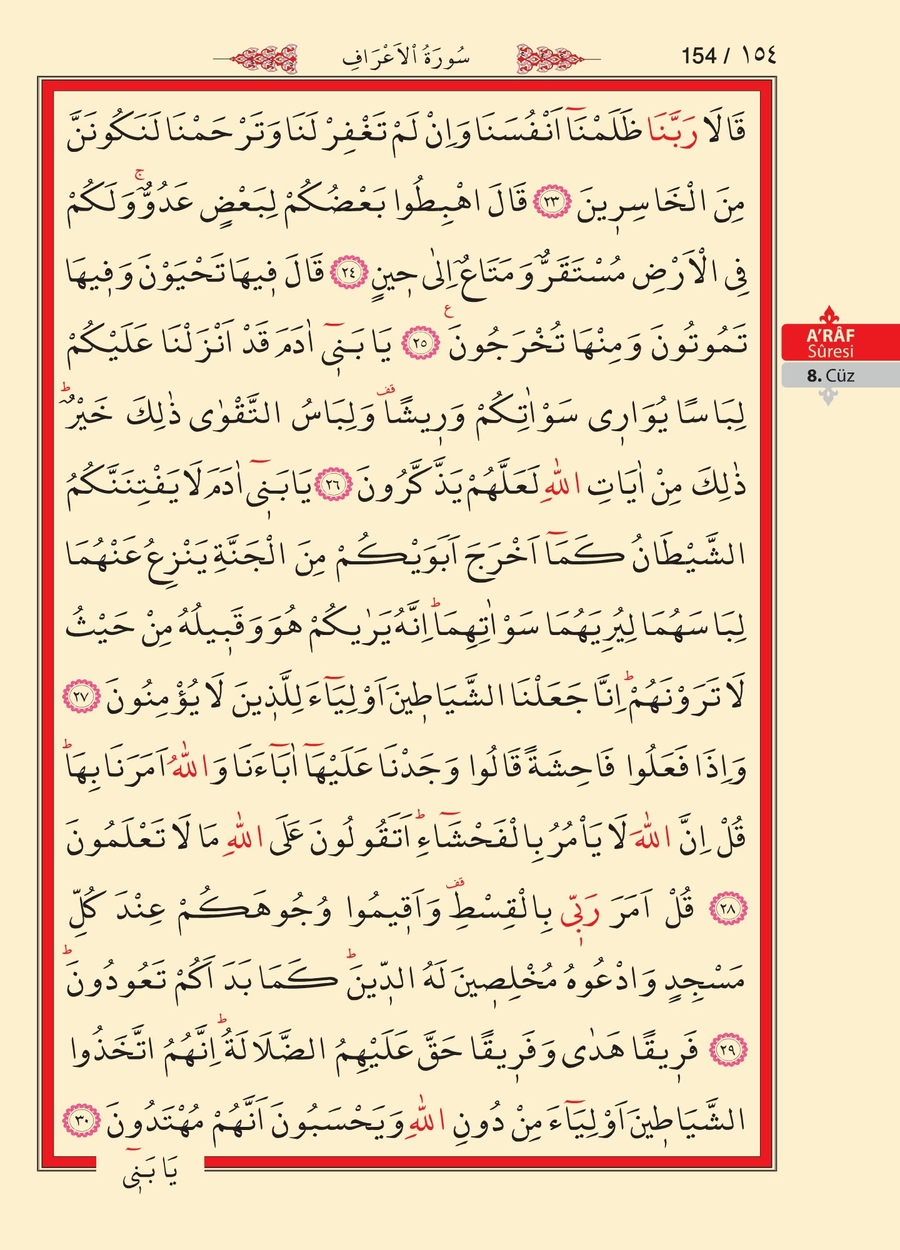 154 / ١٥٤
سُورَةُ الْاَعْرَافِ
قَالَا رَبَّنَا ظَلَمْنَٓا اَنْفُسَنَا وَاِنْ لَمْ تَغْفِرْ لَنَا وَتَرْحَمْنَا لَنَكُونَنَّ
مِنَ الْخَاسِر۪ينَ ﴿٢٣﴾ قَالَ اهْبِطُوا بَعْضُكُمْ لِبَعْضٍ عَدُوٌّۚ وَلَكُمْ
فِي الْاَرْضِ مُسْتَقَرٌّ وَمَتَاعٌ اِلٰى ح۪ينٍ ﴿٢٤﴾ قَالَ ف۪يهَا تَحْيَوْنَ وَف۪يهَا
تَمُوتُونَ وَمِنْهَا تُخْرَجُونَ ع ﴿٢٥﴾ يَا بَن۪ٓي اٰدَمَ قَدْ اَنْزَلْنَا عَلَيْكُمْ
لِبَاسًا يُوَار۪ي سَوْاٰتِكُمْ وَر۪يشًاۜ وَلِبَاسُ التَّقْوٰى ذٰلِكَ خَيْرٌۜ
ذٰلِكَ مِنْ اٰيَاتِ اللّٰهِ لَعَلَّهُمْ يَذَّكَّرُونَ ﴿٢٦﴾ يَا بَن۪ٓي اٰدَمَ لَا يَفْتِنَنَّكُمُ
الشَّيْطَانُ كَمَٓا اَخْرَجَ اَبَوَيْكُمْ مِنَ الْجَنَّةِ يَنْزِعُ عَنْهُمَا
لِبَاسَهُمَا لِيُرِيَهُمَا سَوْاٰتِهِمَاۜ اِنَّهُ يَرٰيكُمْ هُوَ وَقَب۪يلُهُ مِنْ حَيْثُ
لَا تَرَوْنَهُمْۜ اِنَّا جَعَلْنَا الشَّيَاط۪ينَ اَوْلِيَٓاءَ لِلَّذ۪ينَ لَا يُؤْمِنُونَ ﴿٢٧﴾
وَاِذَا فَعَلُوا فَاحِشَةً قَالُوا وَجَدْنَا عَلَيْهَٓا اٰبَٓاءَنَا وَاللّٰهُ اَمَرَنَا بِهَاۜ
قُلْ اِنَّ اللّٰهَ لَا يَاْمُرُ بِالْفَحْشَٓاءِۜ اَتَقُولُونَ عَلَى اللّٰهِ مَا لَا تَعْلَمُونَ
﴿٢٨﴾ قُلْ اَمَرَ رَبّ۪ي بِالْقِسْطِ وَاَق۪يمُوا وُجُوهَكُمْ عِنْدَ كُلِّ
مَسْجِدٍ وَادْعُوهُ مُخْلِص۪ينَ لَهُ الدّ۪ينَۜ كَمَا بَدَاَكُمْ تَعُودُونَۜ
﴿٢٩﴾ فَر۪يقًا هَدٰى وَفَر۪يقًا حَقَّ عَلَيْهِمُ الضَّلَالَةُۜ اِنَّهُمُ اتَّخَذُوا
الشَّيَاط۪ينَ اَوْلِيَٓاءَ مِنْ دُونِ اللّٰهِ وَيَحْسَبُونَ اَنَّهُمْ مُهْتَدُونَ ﴿٣٠﴾
يَا بَن۪ٓي
A'RÂF
Sûresi
8. Cüz